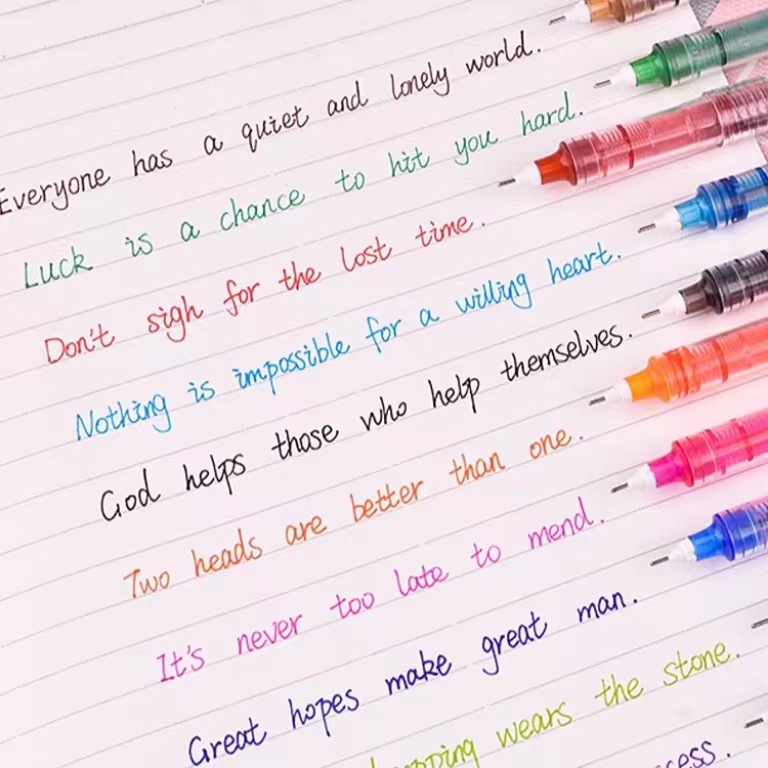 Everyone has a quiet and lonely world.
Luck is a chance to hit you hard.
Don't sigh for the lost time.
Nothing is impossible for a willing heart.
God helps those who help themselves.
Two heads are better than one.
It's never too late to mend.
Great hopes make great man.
wears the stone.